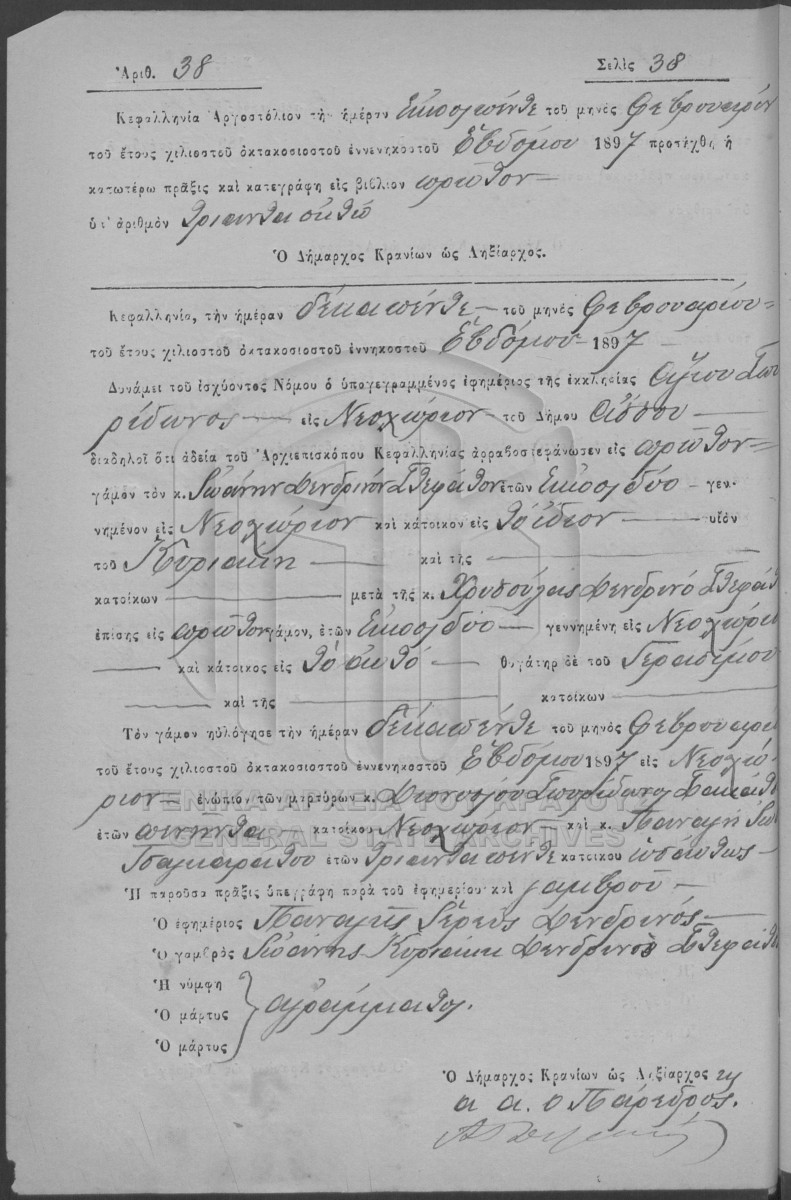 Ἀριθ. 38 Σελὶς 38
Κεφαλληνία Ἀργοστόλιον τὴν ἡμέραν Εἰκοσιπέντε τοῦ μηνὸς Φεβρουαρίου
τοῦ ἔτους χιλιοστοῦ ὀκτακοσιοστοῦ ἐννενηκοστοῦ Ἑβδόμου 1897 προτέχθη ἡ
κατωτέρω πρᾶξις καὶ κατεγράφη εἰς βιβλίον πρῶτον
ὑπ' ἀριθμὸν τριανταοκτώ
Ὁ Δήμαρχος Κρανίων ὡς Ληξίαρχος.
Κεφαλληνία, τὴν ἡμέραν δεκαπέντε τοῦ μηνὸς Φεβρουαρίου
τοῦ ἔτους χιλιοστοῦ ὀκτακοσιοστοῦ ἐννηκοστοῦ Ἑβδόμου 1897
Δυνάμει τοῦ ἰσχύοντος Νόμου ὁ ὑπογεγραμμένος ἐφημέριος τῆς ἐκκλησίας Ἁγίου Σπυ
ρίδωνος εἰς Νεοχώριον τοῦ Δήμου
διαδηλοῖ ὅτι ἀδείᾳ τοῦ Ἀρχιεπισκόπου Κεφαλληνίας ἀρραβοσιεφάνωσεν εἰς πρῶτον
γάμον τὸν κ. Ἰωάννην Δενδρινὸν Στεφάτον ἐτῶν Εἰκοσιδύο γεν-
νημένον εἰς Νεοχώριον καὶ κάτοικον εἰς τὸ ἴδιον υἱὸν
τοῦ Κυριάκη καὶ τῆς
κατοίκων μετὰ τῆς κ. Χρυσούλας Δενδρινό Στεφάτ
ἐπίσης εἰς πρῶτον γάμον, ἐτῶν Εἰκοσιδύο γεννημένη εἰς Νεοχώριο
καὶ κάτοικος εἰς τὸ αὐτό θυγάτηρ δὲ τοῦ Γερασίμου
καὶ τῆς κατοίκων
Τὸν γάμον ηὐλόγησε τὴν ἡμέραν δεκαπέντε τοῦ μηνὸς Φεβρουαρίο
τοῦ ἔτους χιλιοστοῦ ὀκτακοσιοστοῦ ἐννενηκοστοῦ Ἑβδόμου 1897 εἰς Νεοχώ-
ριον ἐνώπιον τῶν μαρτύρων κ. Διονυσίου Σπυρίδωνος
ἐτῶν πενῆντα κατοίκου Νεοχώριον καὶ κ. Παναγῆ Ἰω
ἐτῶν τριανταπέντε κατοίκου ὡσαύτως
Ἡ παροῦσα πρᾶξις ὑπεγράφη παρὰ τοῦ ἐφημερίου καὶ γαμβροῦ
Ὁ ἐφημέριος Παναγῆς Ἱερεὺς Δενδρινός
Ὁ γαμβρὸς Ἰωάννης Κυριάκη Δενδρινὸς Στεφάτο
Ἡ νύμφη
Ὁ μάρτυς ἀγράμματοι.
Ὁ μάρτυς
Ὁ Δήμαρχος Κρανίων ὡς Ληξίαρχος
α α. ὁ Πάρεδρος.
ΓΕΝΙΚΑ ΑΡΧΕΙΑ ΤΟΥ ΚΡΑΤΟΥΣ
GENERAL STATE ARCHIVES